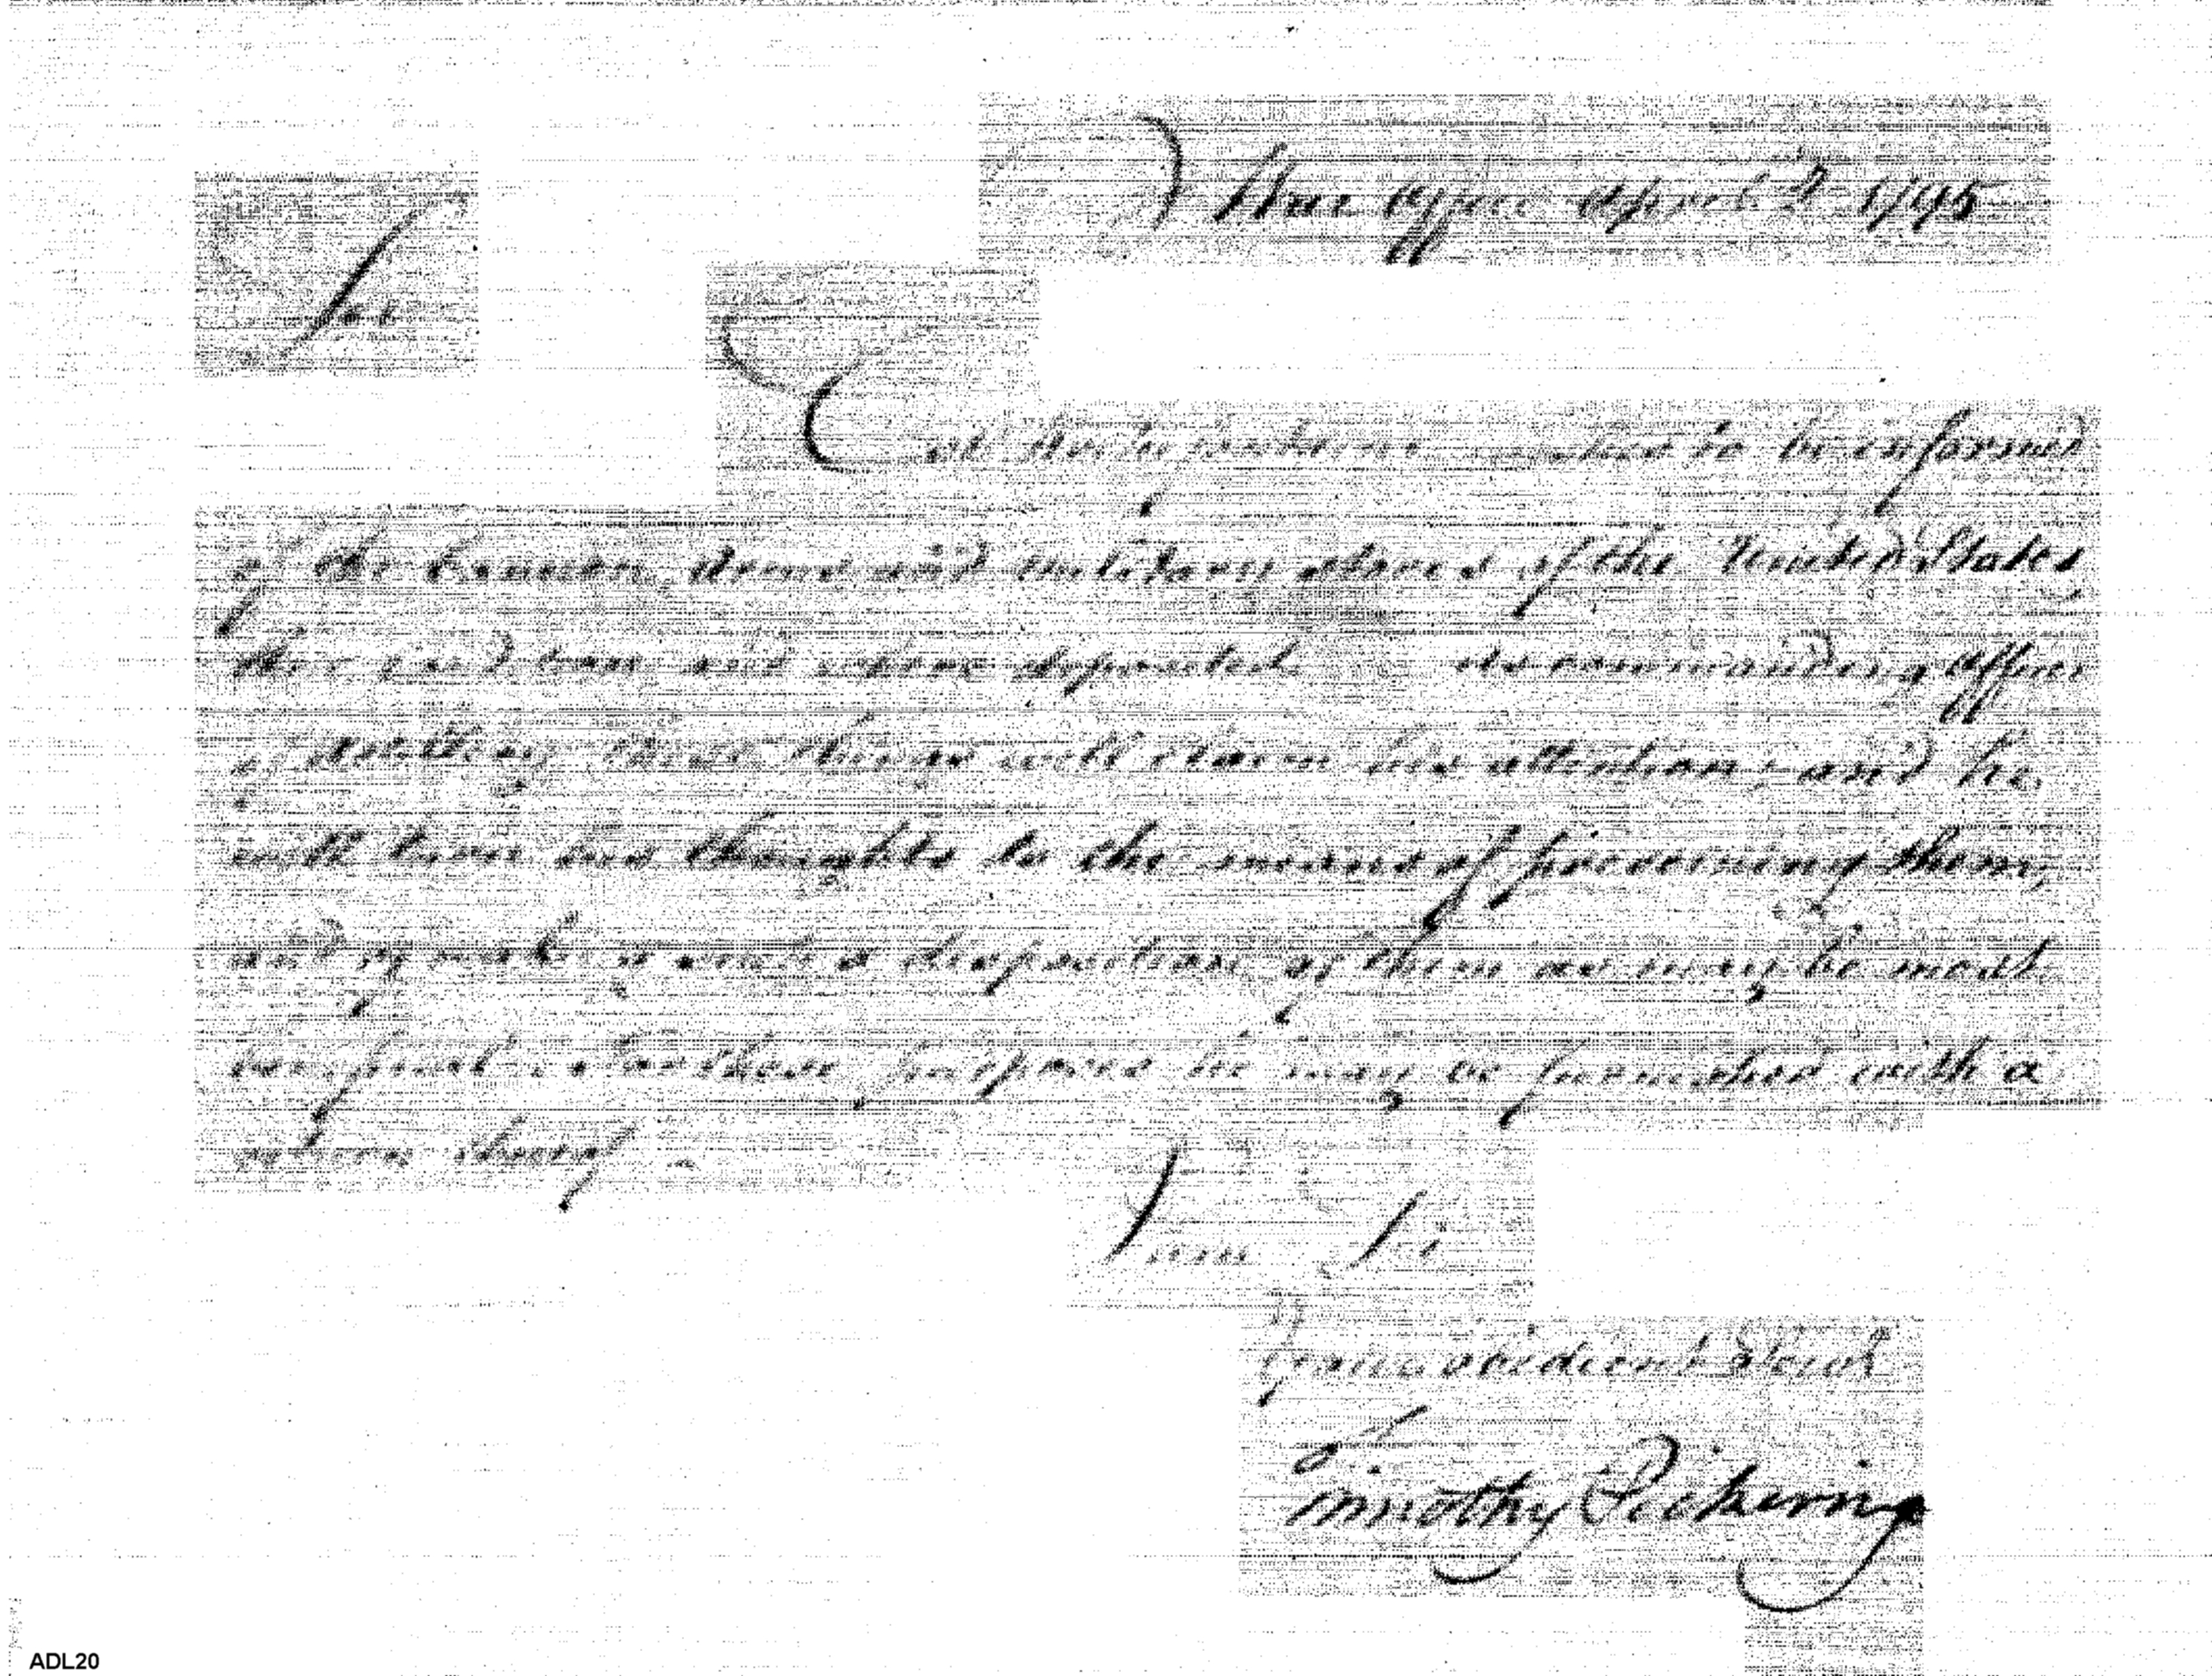 War Office April 2 1795
Sir
to be informed
of the Cannon, Arms and military stores of the United States
their and where deposited As commanding Officer
of Artillery these things will claim his attention; and he
will turn his thoughts to the means of preserving them,
and of making such a disposition of them as may be most
useful. For these purposes he may be furnished with a
return thereof
I am Sir
your obedient Servt
Timothy Pickering
ADL20